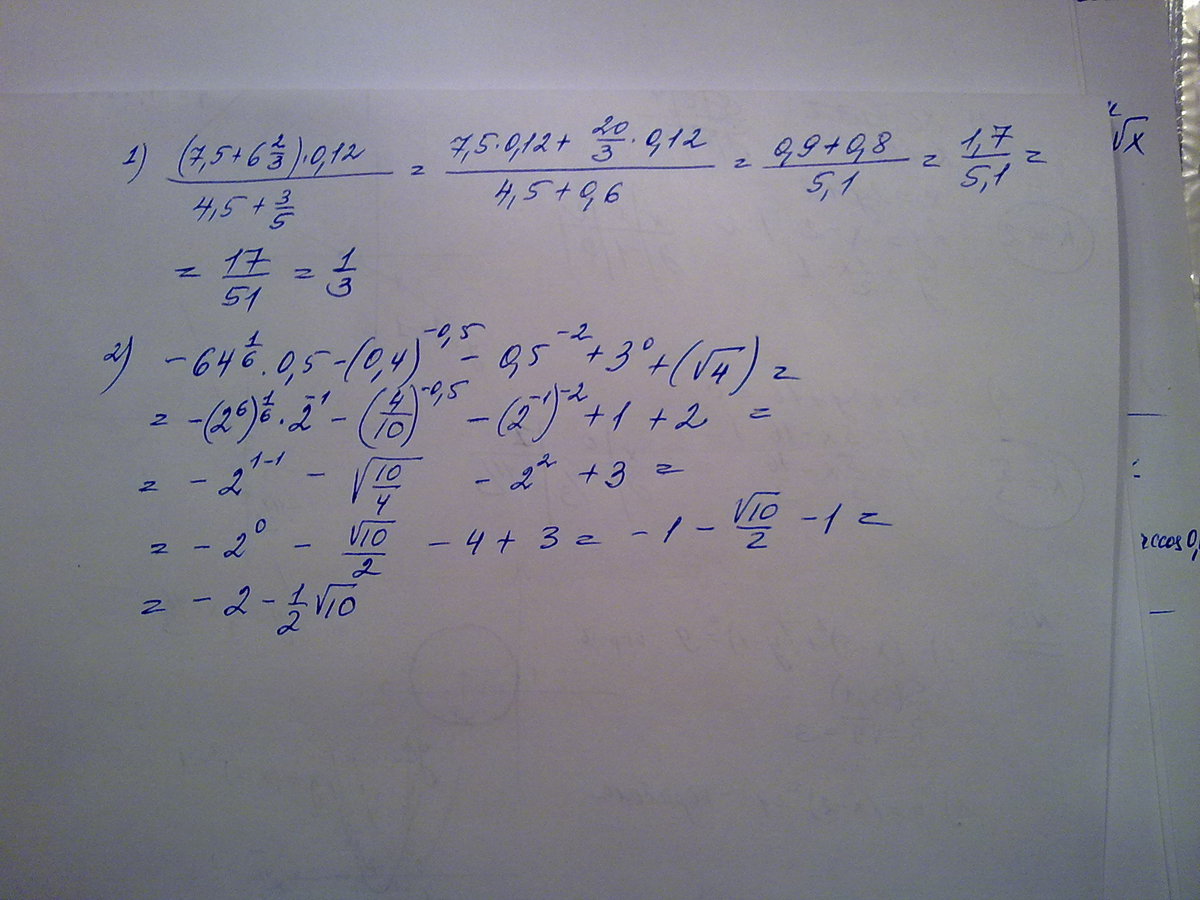 1) ((7,5+6 2/3)·0,12)/(4,5+3/5) = (7,5·0,12+20/3·0,12)/(4,5+0,6) = (0,9+0,8)/5,1 = 1,7/5,1 =
= 17/51 = 1/3
2) -64^(1/6)·0,5-(0,4)^(-0,5)-0,5^(-2)+3^0+(√4) =
= -(2^6)^(1/6)·2^(-1)-(4/10)^(-0,5)-(2^(-1))^(-2)+1+2 =
= -2^(1-1)-√(10/4)-2^2+3 =
= -2^0-√10/2-4+3 = -1-√10/2-1 =
= -2-1/2√10
√x
ccos 0,